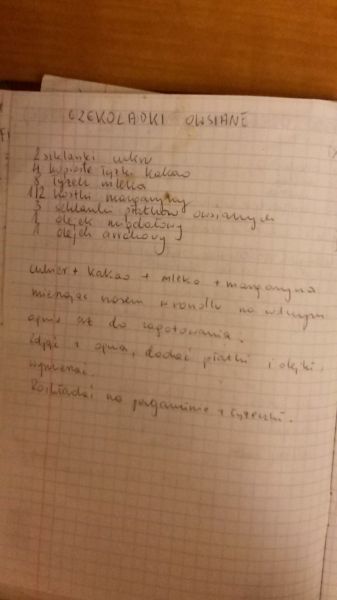 CZEKOLADKI OWSIANE
2 szklanki cukru
4 kopiaste łyżki kakao
8 łyżek mleka
1/2 kostki margaryny
3 szklanki płatków owsianych
1 olejek migdałowy
1 olejek arakowy
cukier + kakao + mleko + margaryna
mieszając razem w rondlu na wolnym
ogniu aż do zagotowania.
Zdjąć z ognia, dodać płatki i olejki,
wymieszać.
Rozkładać na pergaminie z łyżeczki.